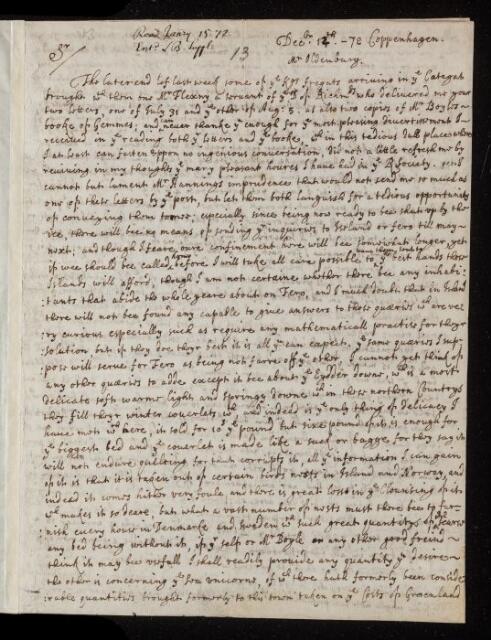 Read Janry 15. 72.
Entd LB. Suppl.
13
Decbr 12th -72 Coppenhagen.
Sr/
Mr Oldenburg.
The later end of last week some of ye Kgs fregats arriving in ye Categat
brought wth them one Mr Flexny a servant of ye D of Richmds who delivered me your
two letters, one of July 31 and ye other of Aug: 5. as also two copies of Mr Boyles
booke of Gemmes; and I can never thanke you enough for ye most pleasing divertisment I
received in ye reading both ye letters and ye booke, wch in this tedious dull place where
I at least can fasten uppon no ingenious conversation, did not a little refresh me by
reviving in my thoughts ye many pleasant houres I have had in ye R Society. yett I
cannot but lament Mr Hannings imprudence that would not send me so much as
one of these letters by ye post, but let them both languish for a tedious opportunity
of conveying them to mee; especially since being now ready to bee shut up by the
ice, there will bee no means of sending ye inquirys to Iseland or fero till may
next; and though I feare our confinement here will bee somewhat longer, yet
if wee should bee called home before I will take all care possible to leave them in ye best hands those
Islands will afford, though I am not certaine whether there bee any inhabi:
:tants that abide the whole yeare about on Fero, and I much doubt that in Island
there will not bee found any capable to give answers to those quaeries wch are ve:
ry curious especially such as require any mathematicall practise for theyr
solution but if they doe theyr best it is all yt can expect, ye same quaeries I sup:
pose will serve for Fero as being not farre off ye other, I cannot yet think of
any other quaeries to adde except it bee about ye Eydder downe, wch is a most
delicate soft warme light and springy downe wch in these northern Countrys
they fill theyr winter coverlets wth, and indeed is ye only thing of delicacy I
have mett wth here, it sold for 10s ye pound but six pound of it is enough for
ye biggest bed and ye coverlet is made like a sack or bagge for they say it
will not endure quilting for that corrupts it, all ye information I can gain
of it is that it is taken out of certain birds nests in Island and Norway, and
indeed it comes hither very foule and there is great losse in ye clensing of it
wch makes it so deare, but what a vast number of nests must there bee to fur:
:nish every house in Denmarke and Sweden wth such great quantitys of it, scarce
any bed being without it, if yr self or Mr Boyle or any other good freind
think it may bee usefull I shall readily provide any quantity yu desire
the other is concerning ye Sea Unicorns, of wch there hath formerly been conside
:rable quantities brought formerly to this town taken on ye Costs of Groenland